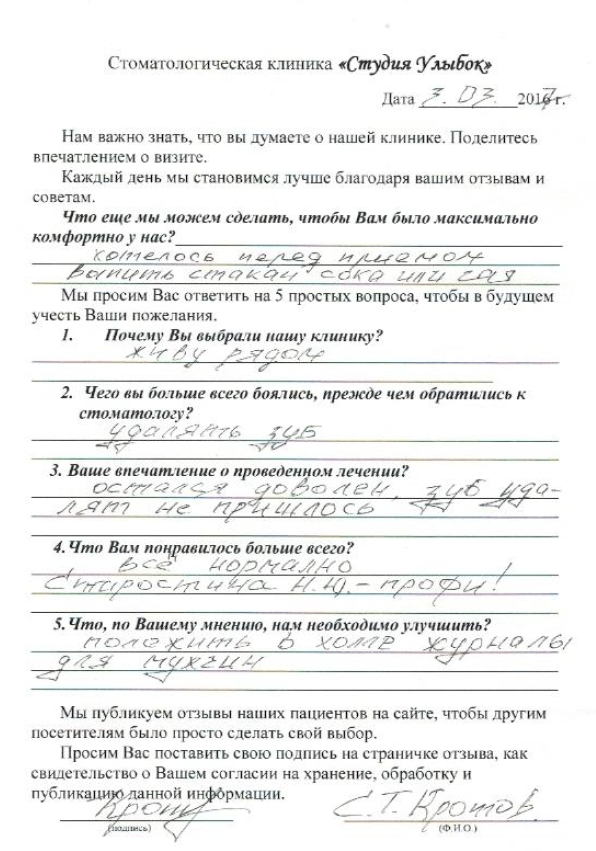 Стоматологическая клиника «Студия Улыбок»
Дата 3.03. 2017 г.
Нам важно знать, что вы думаете о нашей клинике. Поделитесь
впечатлением о визите.
Каждый день мы становимся лучше благодаря вашим отзывам и
советам.
Что еще мы можем сделать, чтобы Вам было максимально
комфортно у нас?
хотелось перед приемом
выпить стакан сока или чая
Мы просим Вас ответить на 5 простых вопроса, чтобы в будущем
учесть Ваши пожелания.
1. Почему Вы выбрали нашу клинику?
живу рядом
2. Чего вы больше всего боялись, прежде чем обратились к
стоматологу?
удалять зуб
3. Ваше впечатление о проведенном лечении?
остался доволен, зуб уда-
лят не пришлось
4. Что Вам понравилось больше всего?
всё нормально
Старостина Н.Ю. - профи!
5. Что, по Вашему мнению, нам необходимо улучшить?
положить в холле журналы
для мужчин
Мы публикуем отзывы наших пациентов на сайте, чтобы другим
посетителям было просто сделать свой выбор.
Просим Вас поставить свою подпись на страничке отзыва, как
свидетельство о Вашем согласии на хранение, обработку и
публикацию данной информации.
С.Т. Кротов
(подпись) (Ф.И.О.)